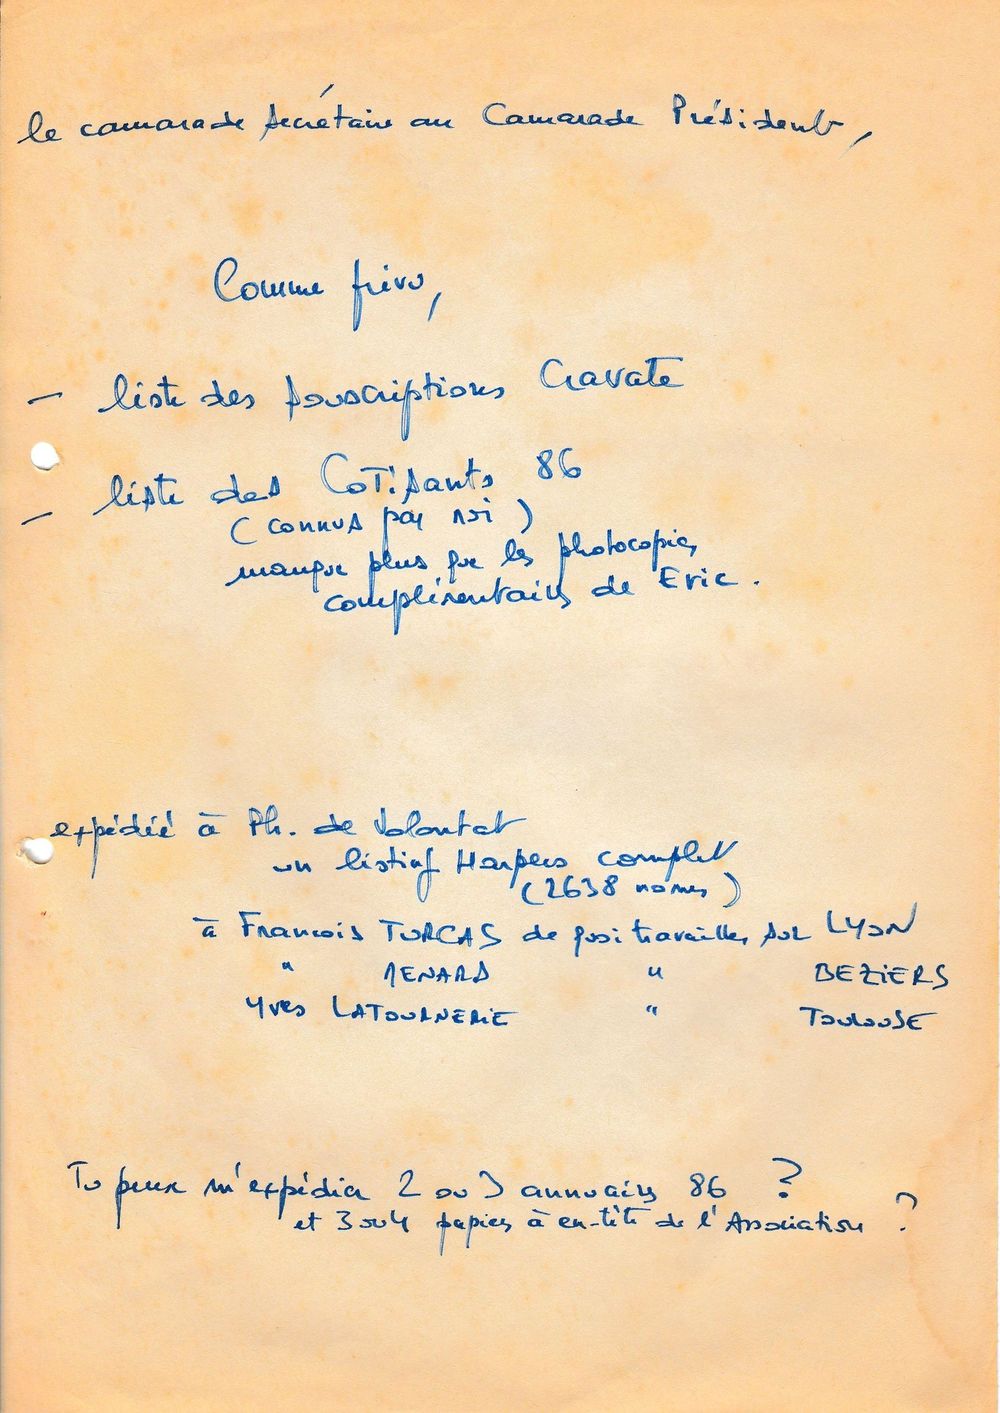 le camarade secrétaire au Camarade Président,
Comme prévu,
– liste des souscriptions Cravate
– liste des Cotisants 86
(connus par moi)
manque plus que les photocopies
complémentaires de Eric.
expédié à Ph. de Volontat
un listing Harpers complet
(2638 noms)
à Francois TURCAS de quoi travailler sur LYON
" MENARD " BEZIERS
Yves LATOURNERIE " TOULOUSE
Tu peux m'expédier 2 ou 3 annuaires 86 ?
et 3 ou 4 papiers à en-tête de l'Association ?